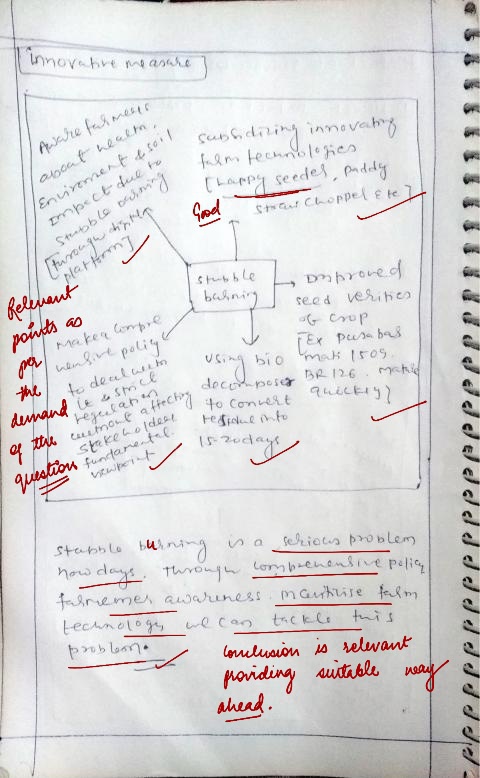 Innovative measure
Aware farmers
about health,
Environment & soil
Impact due to
stubble burning
[through digital
platform]
subsidizing innovating
farm technologies
[happy seeder, paddy
straw choppel etc]
Good
stubble
burning
Improved
seed verities
of crop
[Ex pusabas
mati 1509.
quickly]
using bio
decomposer
to convert
residue into
15-20 days
make a compre
hensive policy
to deal with
it & strict
regulation
without affecting
stakeholder
fundamental
viewpoint
Relevant
points as
per
the
demand
of the
question
stubble burning is a serious problem
now days. Through comprehensive policy
awareness. farm
technology we can tackle this
problem.
Conclusion is relevant
providing suitable way
ahead.